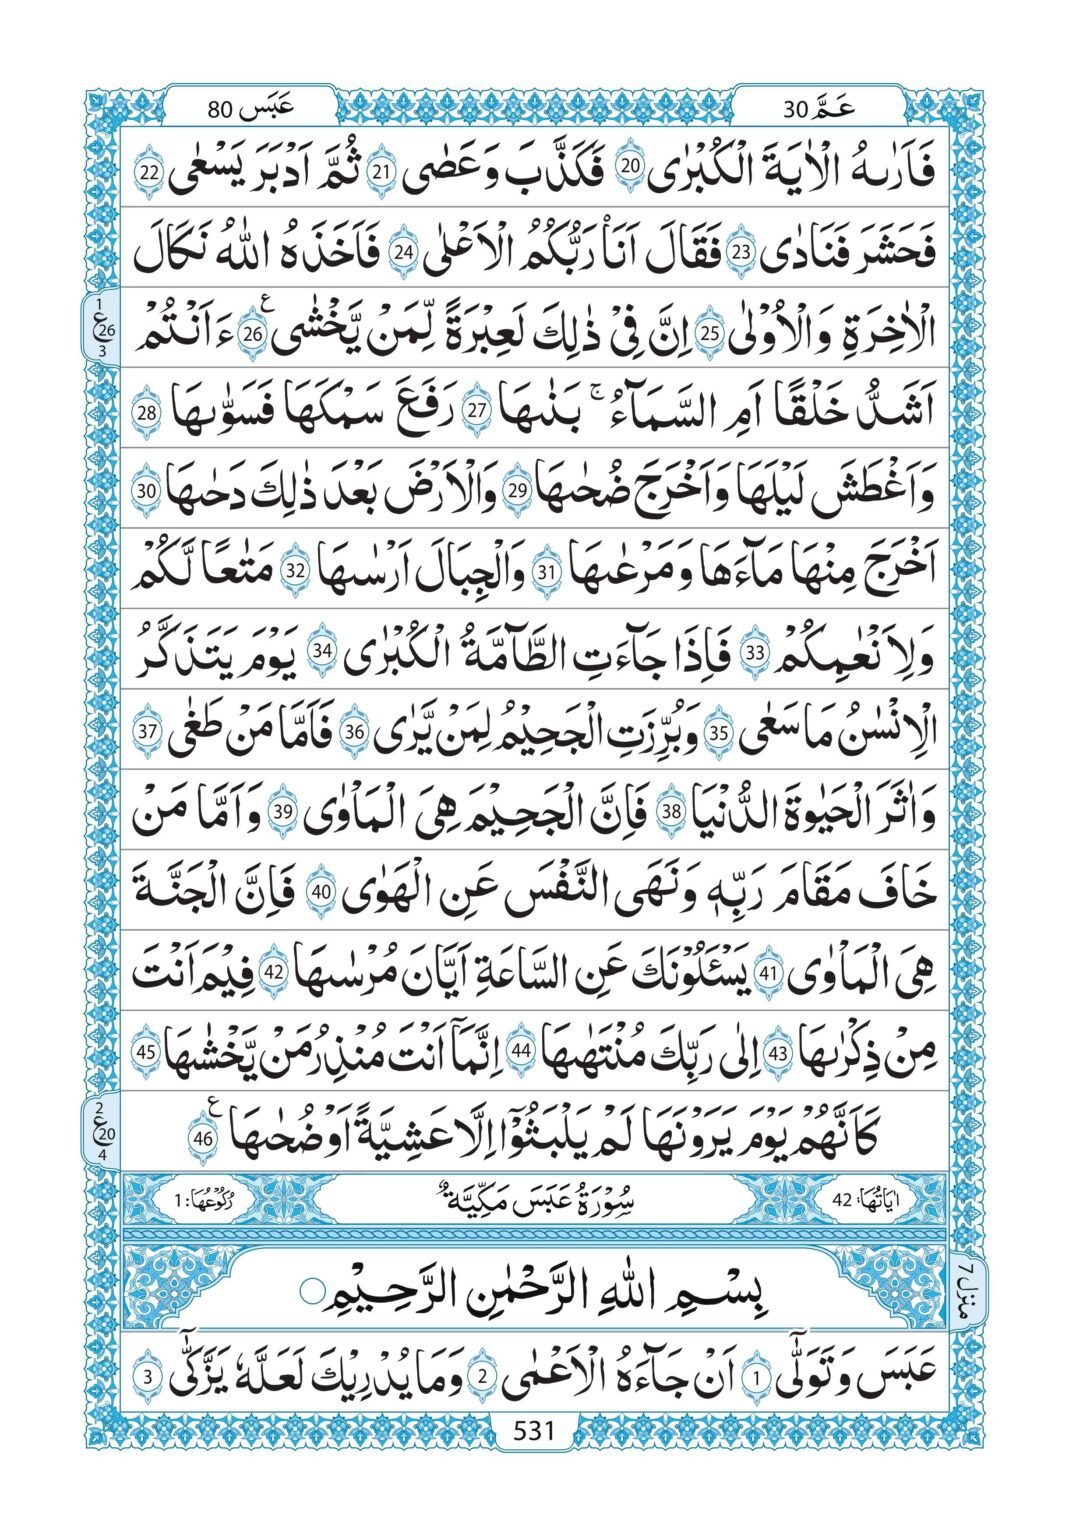 عَمَّ 30
عَبَسَ 80
فَاَرٰىهُ الْاٰيَةَ الْكُبْرٰى 20 فَكَذَّبَ وَعَصٰى 21 ثُمَّ اَدْبَرَ يَسْعٰى 22
فَحَشَرَ فَنَادٰى 23 فَقَالَ اَنَا۠ رَبُّكُمُ الْاَعْلٰى 24 فَاَخَذَهُ اللّٰهُ نَكَالَ
الْاٰخِرَةِ وَالْاُوْلٰى 25 اِنَّ فِيْ ذٰلِكَ لَعِبْرَةً لِّمَنْ يَّخْشٰى 26 ع ءَاَنْتُمْ
1 ع 26 3
اَشَدُّ خَلْقًا اَمِ السَّمَآءُ ۚ بَنٰىهَا 27 رَفَعَ سَمْكَهَا فَسَوّٰىهَا 28
وَاَغْطَشَ لَيْلَهَا وَاَخْرَجَ ضُحٰىهَا 29 وَالْاَرْضَ بَعْدَ ذٰلِكَ دَحٰىهَا 30
اَخْرَجَ مِنْهَا مَآءَهَا وَمَرْعٰىهَا 31 وَالْجِبَالَ اَرْسٰىهَا 32 مَتٰعًا لَّكُمْ
وَلِاَنْعٰمِكُمْ 33 فَاِذَا جَآءَتِ الطَّآمَّةُ الْكُبْرٰى 34 يَوْمَ يَتَذَكَّرُ
الْاِنْسٰنُ مَا سَعٰى 35 وَبُرِّزَتِ الْجَحِيْمُ لِمَنْ يَّرٰى 36 فَاَمَّا مَنْ طَغٰى 37
وَاٰثَرَ الْحَيٰوةَ الدُّنْيَا 38 فَاِنَّ الْجَحِيْمَ هِيَ الْمَاْوٰى 39 وَاَمَّا مَنْ
خَافَ مَقَامَ رَبِّهٖ وَنَهَى النَّفْسَ عَنِ الْهَوٰى 40 فَاِنَّ الْجَنَّةَ
هِيَ الْمَاْوٰى 41 يَسْـَٔلُوْنَكَ عَنِ السَّاعَةِ اَيَّانَ مُرْسٰىهَا 42 فِيْمَ اَنْتَ
مِنْ ذِكْرٰىهَا 43 اِلٰى رَبِّكَ مُنْتَهٰىهَا 44 اِنَّمَآ اَنْتَ مُنْذِرُ مَنْ يَّخْشٰىهَا 45
كَاَنَّهُمْ يَوْمَ يَرَوْنَهَا لَمْ يَلْبَثُوْٓا اِلَّا عَشِيَّةً اَوْ ضُحٰىهَا 46 ع
2 ع 20 4
اٰيَاتُهَا: 42 سُوْرَةُ عَبَسَ مَكِّيَّةٌ رُكُوْعُهَا: 1
بِسْمِ اللّٰهِ الرَّحْمٰنِ الرَّحِيْمِ
منزل 7
عَبَسَ وَتَوَلّٰٓى 1 اَنْ جَآءَهُ الْاَعْمٰى 2 وَمَا يُدْرِيْكَ لَعَلَّهٗ يَزَّكّٰٓى 3
531